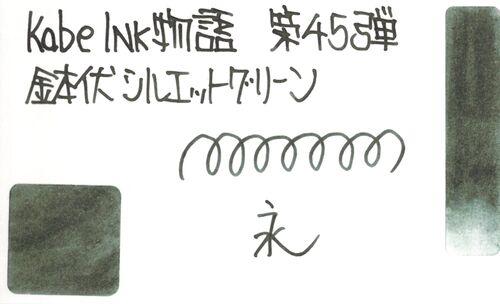 Kobe INK物語 第45弾
鉢伏シルエットグリーン
永